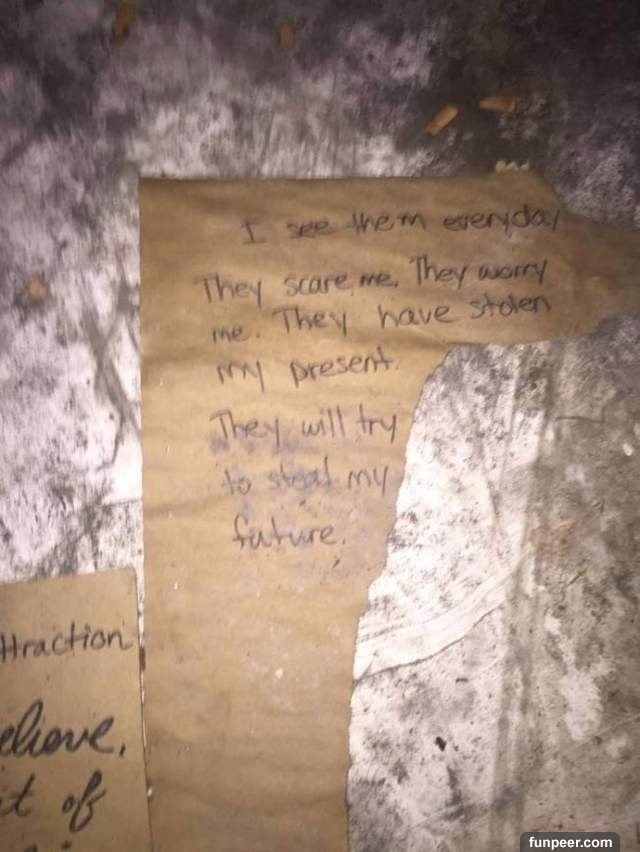 I see them everyday
They scare me. They worry
me. They have stolen
my present.
They will try
to steal my
future.
ttraction
elieve.
t of
funpeer.com